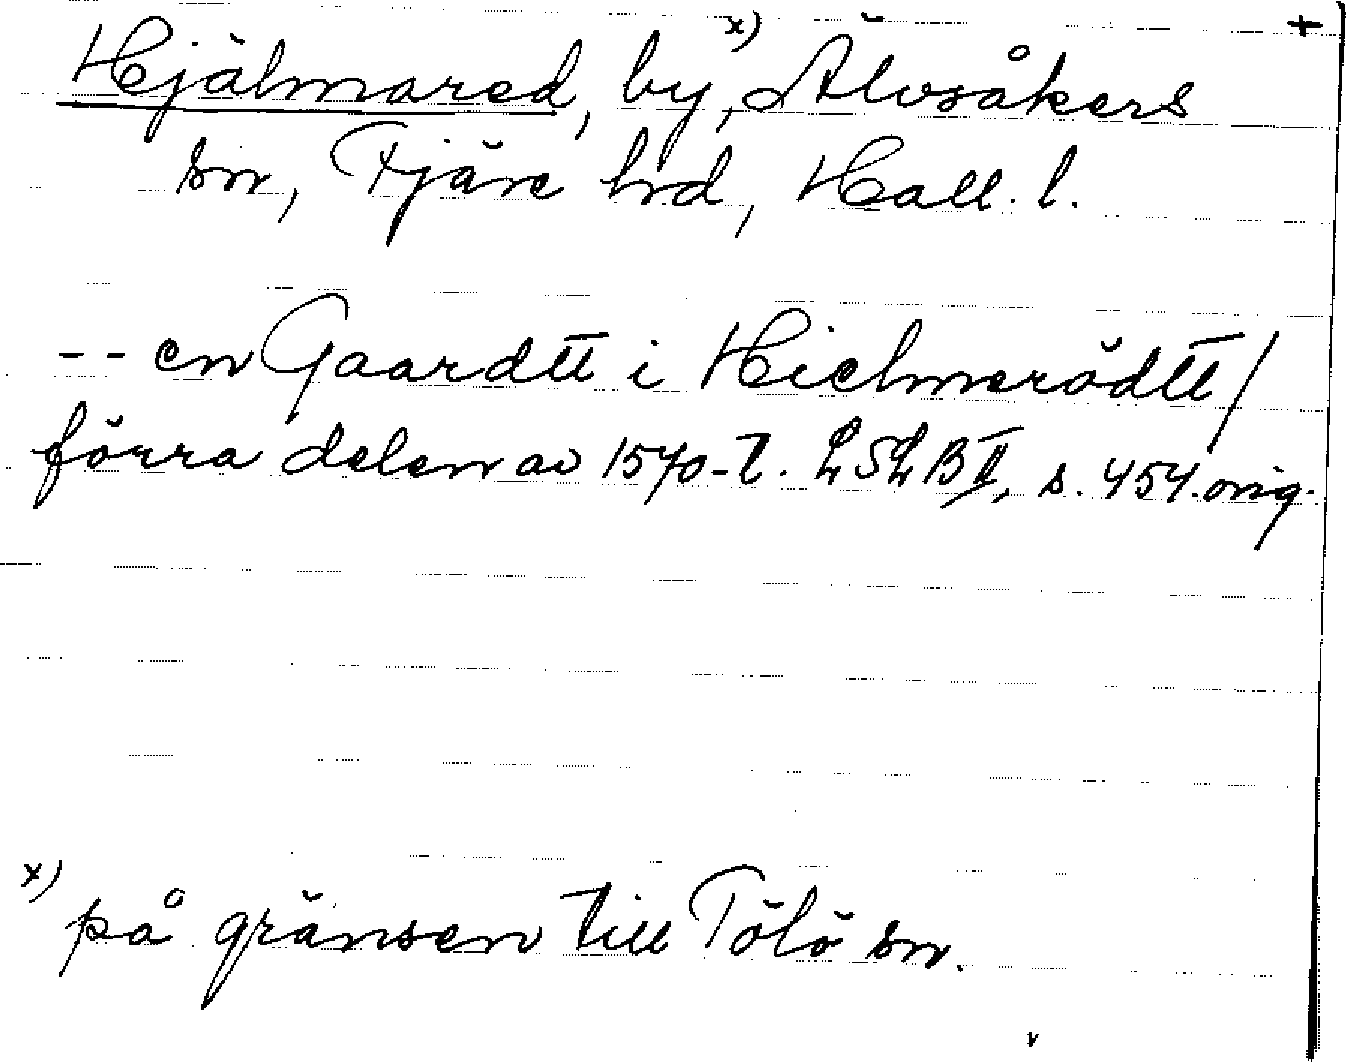 +
Hjälmared, by,x) Älvsåkers
sn, Fjäre hd, Hall. l.
-- en Gaardtt i Hielmerödtt/
förra delen av 1570-t. LSLB II, s. 454. orig.
x) på gränsen till Tölö sn.
v